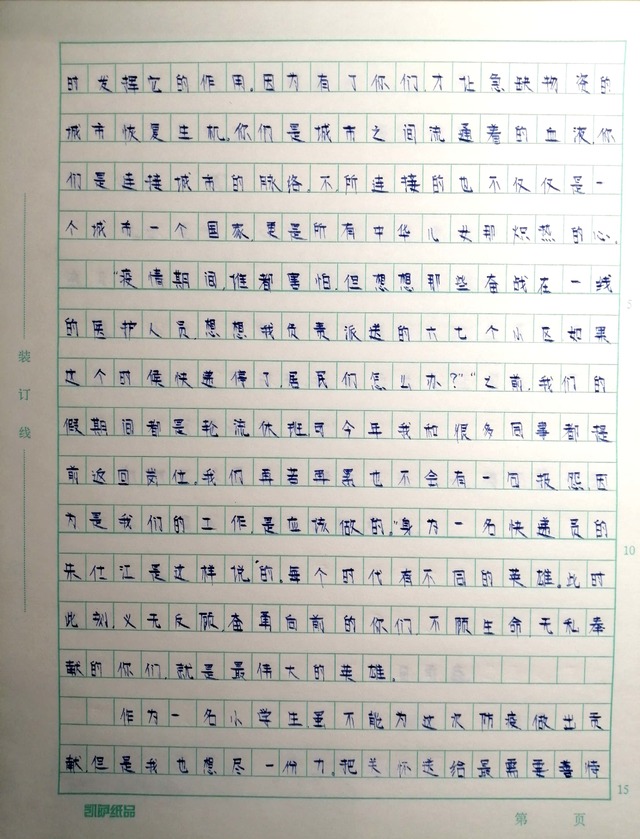 时发挥它的作用。因为有了你们,才让急缺物资的
城市恢复生机。你们是城市之间流通着的血液,你
们是连接城市的脉络。不,所连接的也不仅仅是一
个城市一个国家,更是所有中华儿女那炽热的心。
“疫情期间,谁都害怕,但想想那些奋战在一线
的医护人员想想我负责派送的六七个小区如果
这个时候快递停了,居民们怎么办?”“之前,我们的
假期间都是轮流休班可今年我和很多同事都提
前返回岗位。我们再苦再累也不会有一句报怨。因
为是我们的工作,是应该做的。”身为一名快递员的
朱仕江是这样说的。每个时代有不同的英雄。此时
此刻,义无反顾,奋勇向前的你们,不顾生命无私奉
献的你们,就是最伟大的英雄。
作为一名小学生虽不能为这次防疫做出贡
献,但是我也想尽一份力。把关怀送给最需要善待
装订线
5
10
15
凯萨纸品
第 页